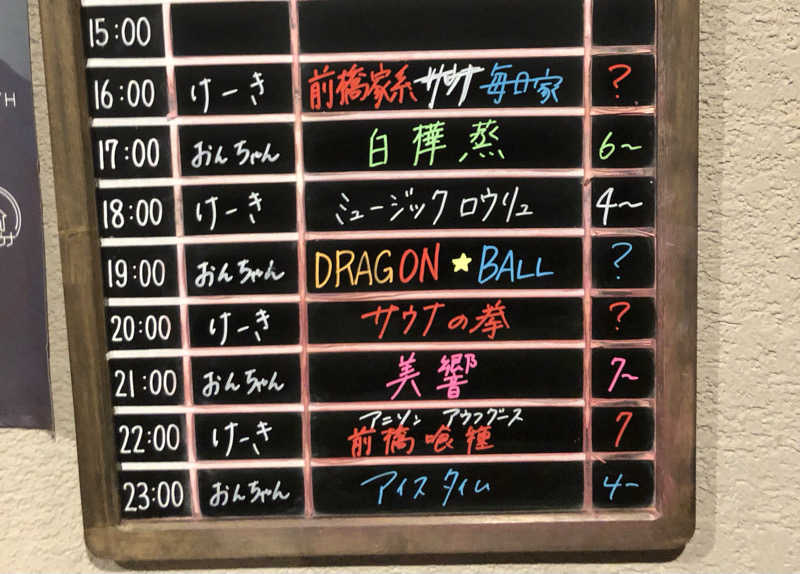 15:00
16:00 けーき 前橋家系 サウナ 毎日家 ?
17:00 おんちゃん 白樺蒸 6~
18:00 けーき ミュージック ロウリュ 4~
19:00 おんちゃん DRAGON ★ BALL ?
20:00 けーき サウナの拳 ?
21:00 おんちゃん 美響 7~
アニソン アウフグース
22:00 けーき 前橋喰種 7
23:00 おんちゃん アイスタイム 4~